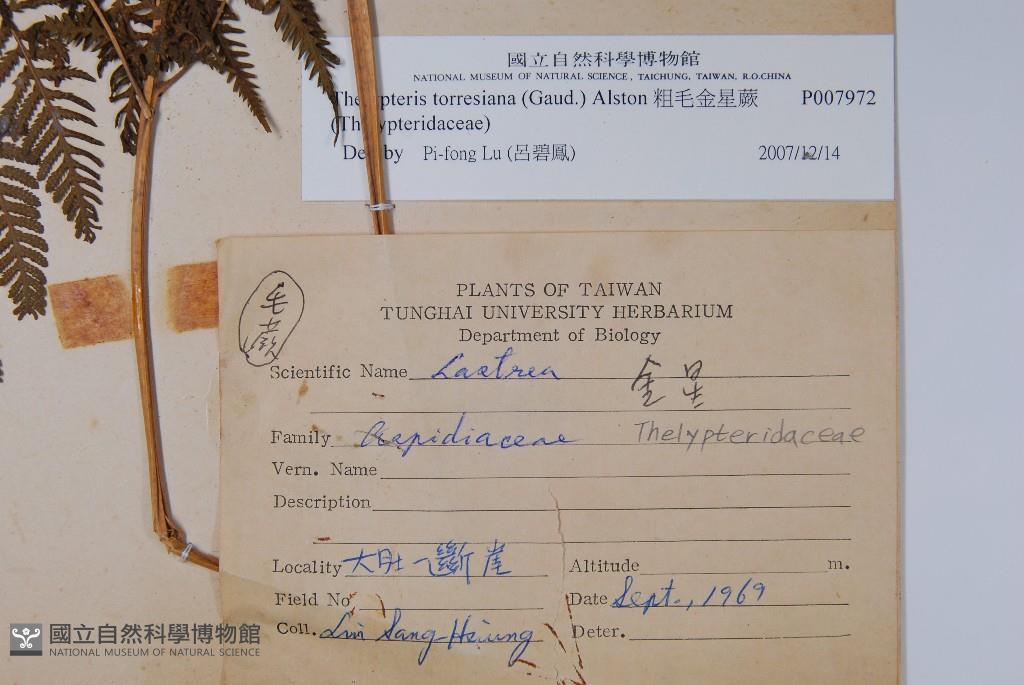 國立自然科學博物館
NATIONAL MUSEUM OF NATURAL SCIENCE, TAICHUNG, TAIWAN, R.O.CHINA
Thelypteris torresiana (Gaud.) Alston 粗毛金星蕨 P007972
(Thelypteridaceae)
Det. by Pi-fong Lu (呂碧鳳) 2007/12/14
毛蕨
PLANTS OF TAIWAN
TUNGHAI UNIVERSITY HERBARIUM
Department of Biology
Scientific Name Lastrea 金星
Family Aspidiaceae Thelypteridaceae
Vern. Name
Description
Locality 大肚一斷崖 Altitude m.
Field No. Date Sept., 1969
Coll. Lin Sang-Hsiung Deter.
國立自然科學博物館
NATIONAL MUSEUM OF NATURAL SCIENCE